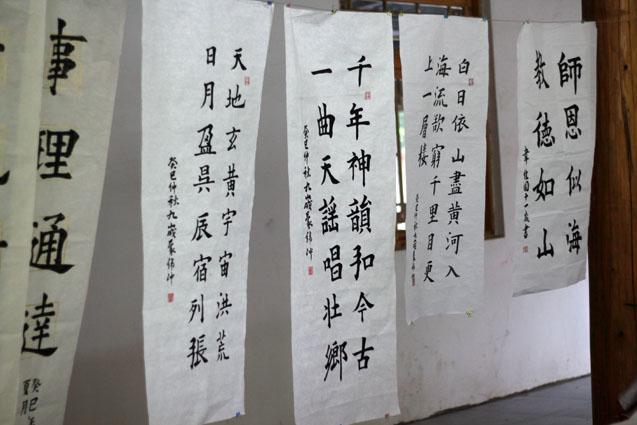 事理通達
癸巳年
夏月
天地玄黃宇宙洪荒
日月盈昃辰宿列張
癸巳仲秋九歲蒙
千年神韻和今古
一曲天謠唱壯鄉
癸巳仲秋九歲蒙
白日依山盡黃河入
海流欲窮千里目更
上一層樓
癸巳仲秋九歲蒙
師恩似海
教德如山
韋十一歲書